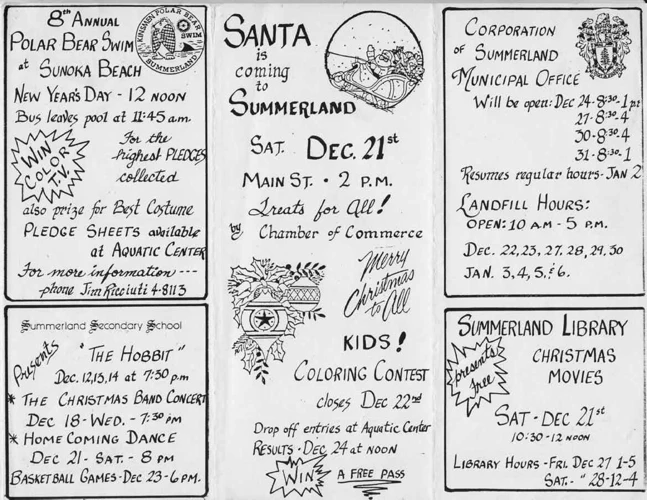 8th ANNUAL
POLAR BEAR SWIM
at SUNOKA BEACH
POLAR BEAR
SWIM
SUMMERLAND
NEW YEAR'S DAY - 12 NOON
Bus leaves pool at 11:45 am
WIN COLOR T.V.
For the
highest PLEDGES
collected
also prize for Best Costume
PLEDGE SHEETS available
at AQUATIC CENTER
For more information ---
phone Jim Ricciuti 4-8113
Summerland Secondary School
Presents
"THE HOBBIT"
Dec. 12,13,14 at 7:30 p.m
* THE CHRISTMAS BAND CONCERT
DEC 18 - WED. - 7:30 PM
* HOME COMING DANCE
DEC 21 - SAT. - 8 PM
BASKETBALL GAMES - DEC 23 - 6 P.M.
SANTA
is
coming
to
SUMMERLAND
SAT. DEC. 21st
MAIN ST. • 2 P.M.
Treats for All!
by Chamber of Commerce
Merry
Christmas
to All
KIDS!
COLORING CONTEST
closes DEC 22nd
Drop off entries at Aquatic Center
RESULTS - DEC 24 at NOON
WIN A FREE PASS
CORPORATION
OF SUMMERLAND
MUNICIPAL OFFICE
Will be open: DEC 24 - 8:30 - 1pm
27 - 8:30 - 4
30 - 8:30 - 4
31 - 8:30 - 1
Resumes regular hours - JAN 2
LANDFILL HOURS:
OPEN: 10 AM - 5 P.M.
DEC. 22, 23, 27, 28, 29, 30
JAN. 3, 4, 5, & 6.
SUMMERLAND LIBRARY
presents
Free
CHRISTMAS
MOVIES
SAT - DEC 21st
10:30 - 12 NOON
LIBRARY HOURS - FRI. DEC 27 1-5
SAT. - " 28 - 12-4